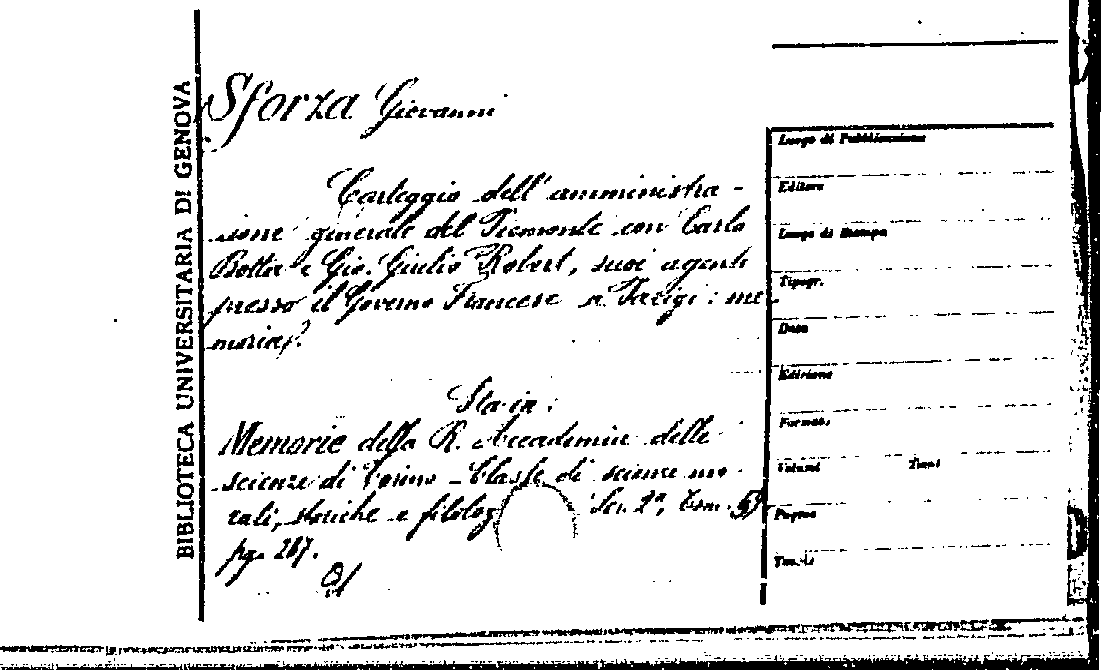 BIBLIOTECA UNIVERSITARIA DI GENOVA
Sforza Giovanni
Carteggio dell'amministra-
zione generale del Piemonte con Carlo
Botta e Gio. Giulio Robert, suoi agenti
presso il Governo Francese a Parigi: me-
moria.
Sta in:
Memorie della R. Accademia delle
scienze di Torino - Classe di scienze mo-
rali, storiche e filolog Ser. 2ª, Tom.
pg. 287.
Luogo di Pubblicazione
Editore
Luogo di Stampa
Tipogr.
Data
Edizione
Formato
Volumi Tomi
Pagine
Tavole